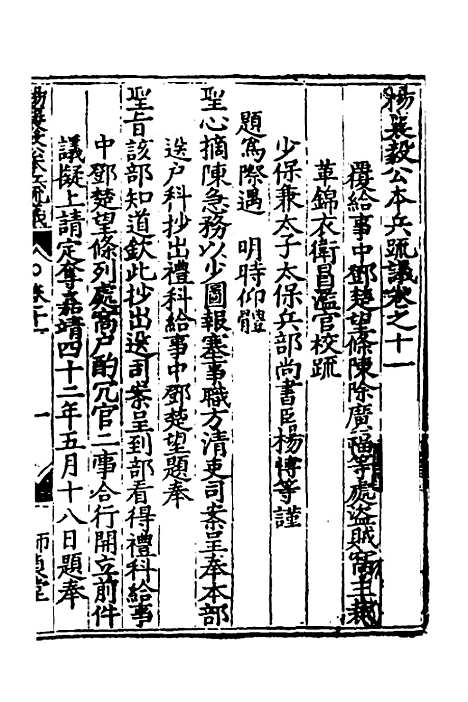 楊襄毅公本兵疏議卷之十一
覆給事中鄧楚望條陳除廣福等處盜賊窩主裁
革錦衣衛冒濫官校疏
少保兼太子太保兵部尚書臣楊博等謹
題爲際遇　明時仰體
聖心摘陳急務以少圖報塞事職方清吏司案呈奉本部
送户科抄出禮科給事中鄧楚望題奉
聖旨該部知道欽此抄出送司案呈到部看得禮科給事
中鄧楚望條列處窩户酌冗官二事合行開立前件
議擬上請定奪嘉靖四十二年五月十八日題奉
楊襄毅公本兵疏議
卷十一
一
師貞堂